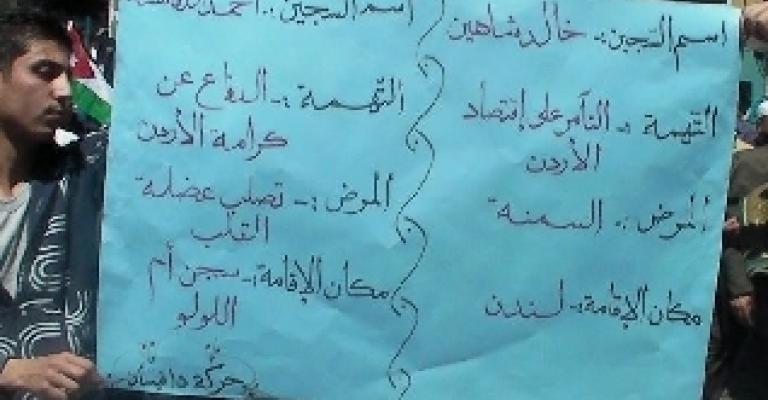 اسم السجين :- خالد شاهين
التهمة :- التآمر على إقتصاد
الأردن
المرض :- السمنة
مكان الإقامة :- لندن
اسم السجين :- أحمد
التهمة :- الدفاع عن
كرامة الأردن
المرض :- تصلب عضلة
القلب
مكان الإقامة :- سجن أم
اللولو
حركة